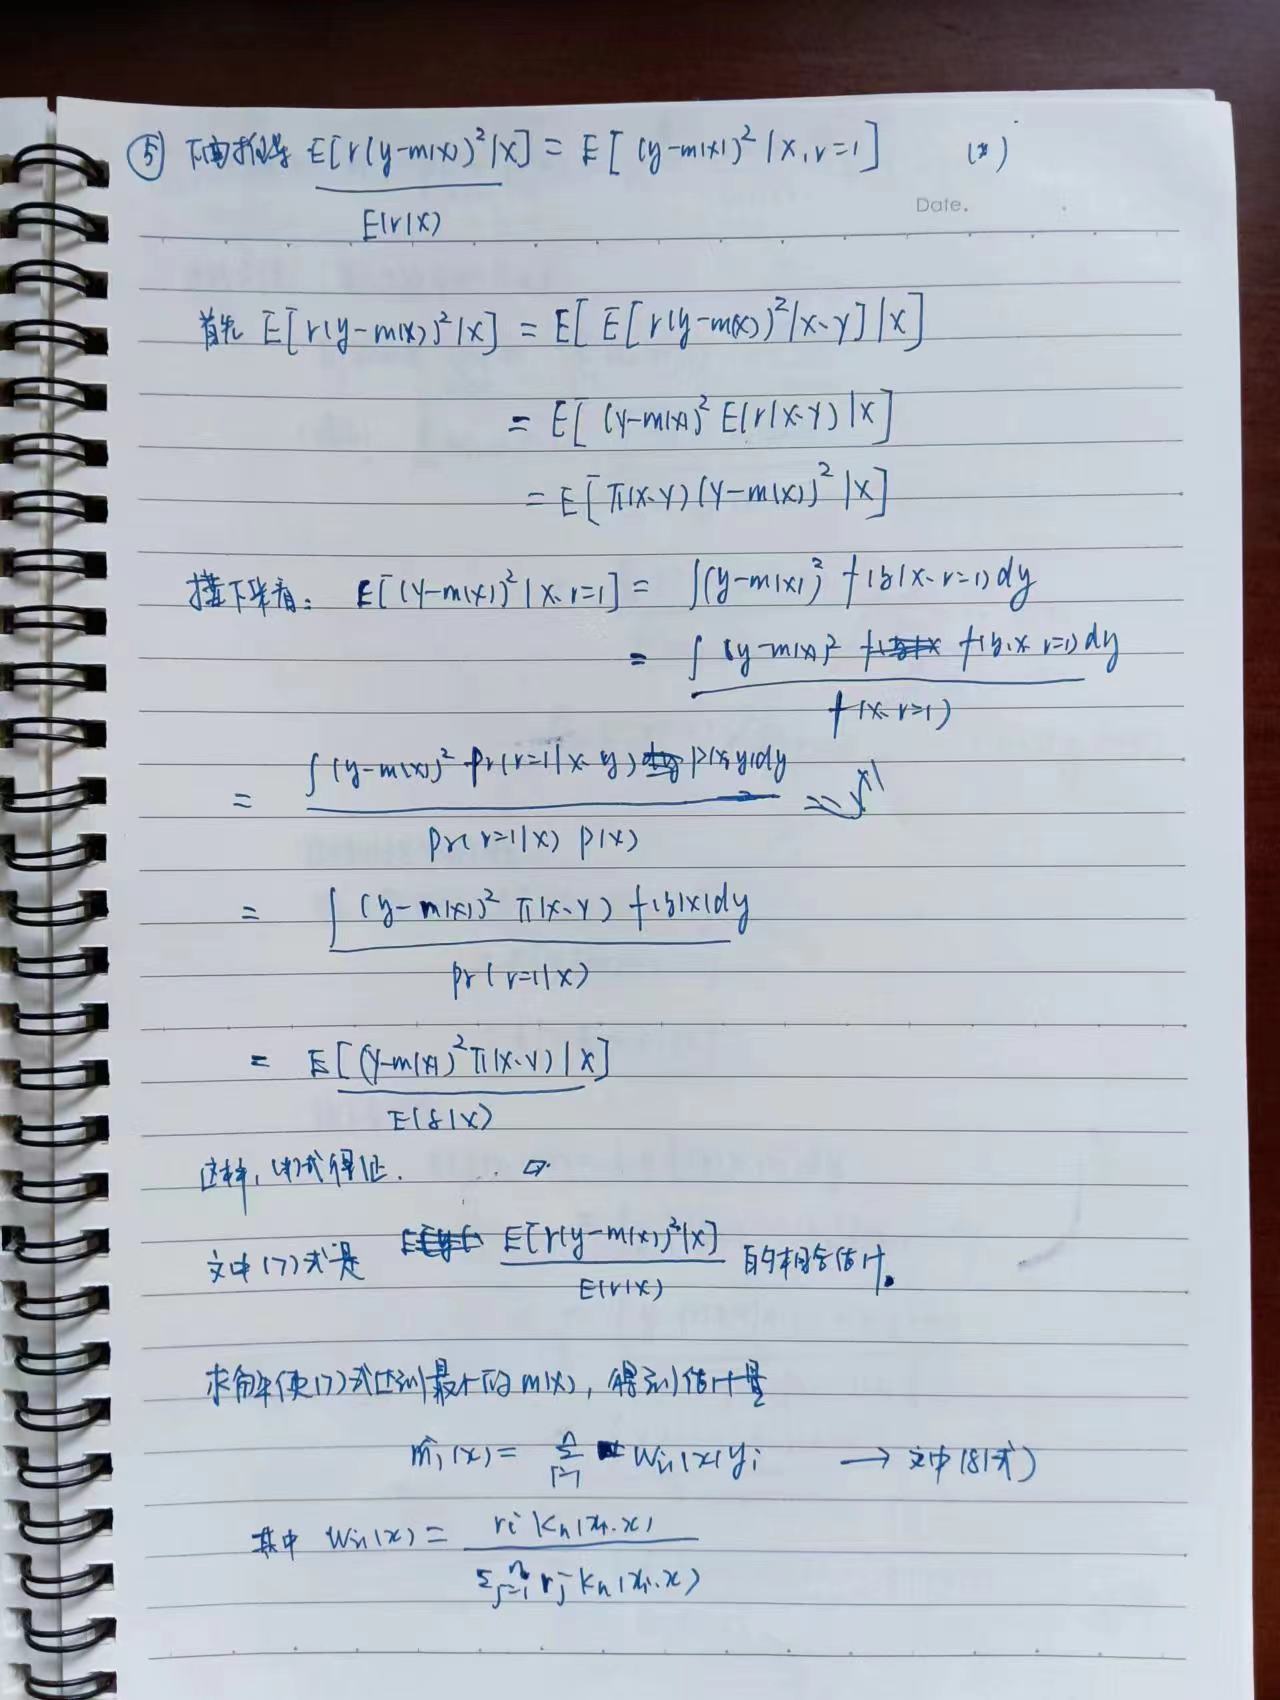 ⑤ 下面推导 E[r(y-m(x))²|x] / E(r|x) = E[(y-m(x))²|x, r=1] (*)
Date.
首先 E[r(y-m(x))²|x] = E[E[r(y-m(x))²|x、y]|x]
= E[(y-m(x))² E(r|x、y)|x]
= E[π(x、y)(y-m(x))²|x]
接下来看: E[(y-m(x))²|x、r=1] = ∫(y-m(x))² f(y|x、r=1)dy
= ∫(y-m(x))² f(y、x、r=1)dy / f(x、r=1)
= ∫(y-m(x))² pr(r=1|x、y) p(x,y)dy / pr(r=1|x) p(x)
= ∫(y-m(x))² π(x、y) f(y|x)dy / pr(r=1|x)
= E[(y-m(x))² π(x、y)|x] / E(δ|x)
这样,(*)式得证. □
文中(7)式是 E[r(y-m(x))²|x] / E(r|x) 的相合估计。
求解使(7)式达到最小的m(x), 得到估计量
m̂₁(x) = Σⁿᵢ₌₁ Wni(x)yi → 文中(8)式
其中 Wni(x) = ri Kh(xi、x) / Σⁿⱼ₌₁ rj Kh(xi、x)